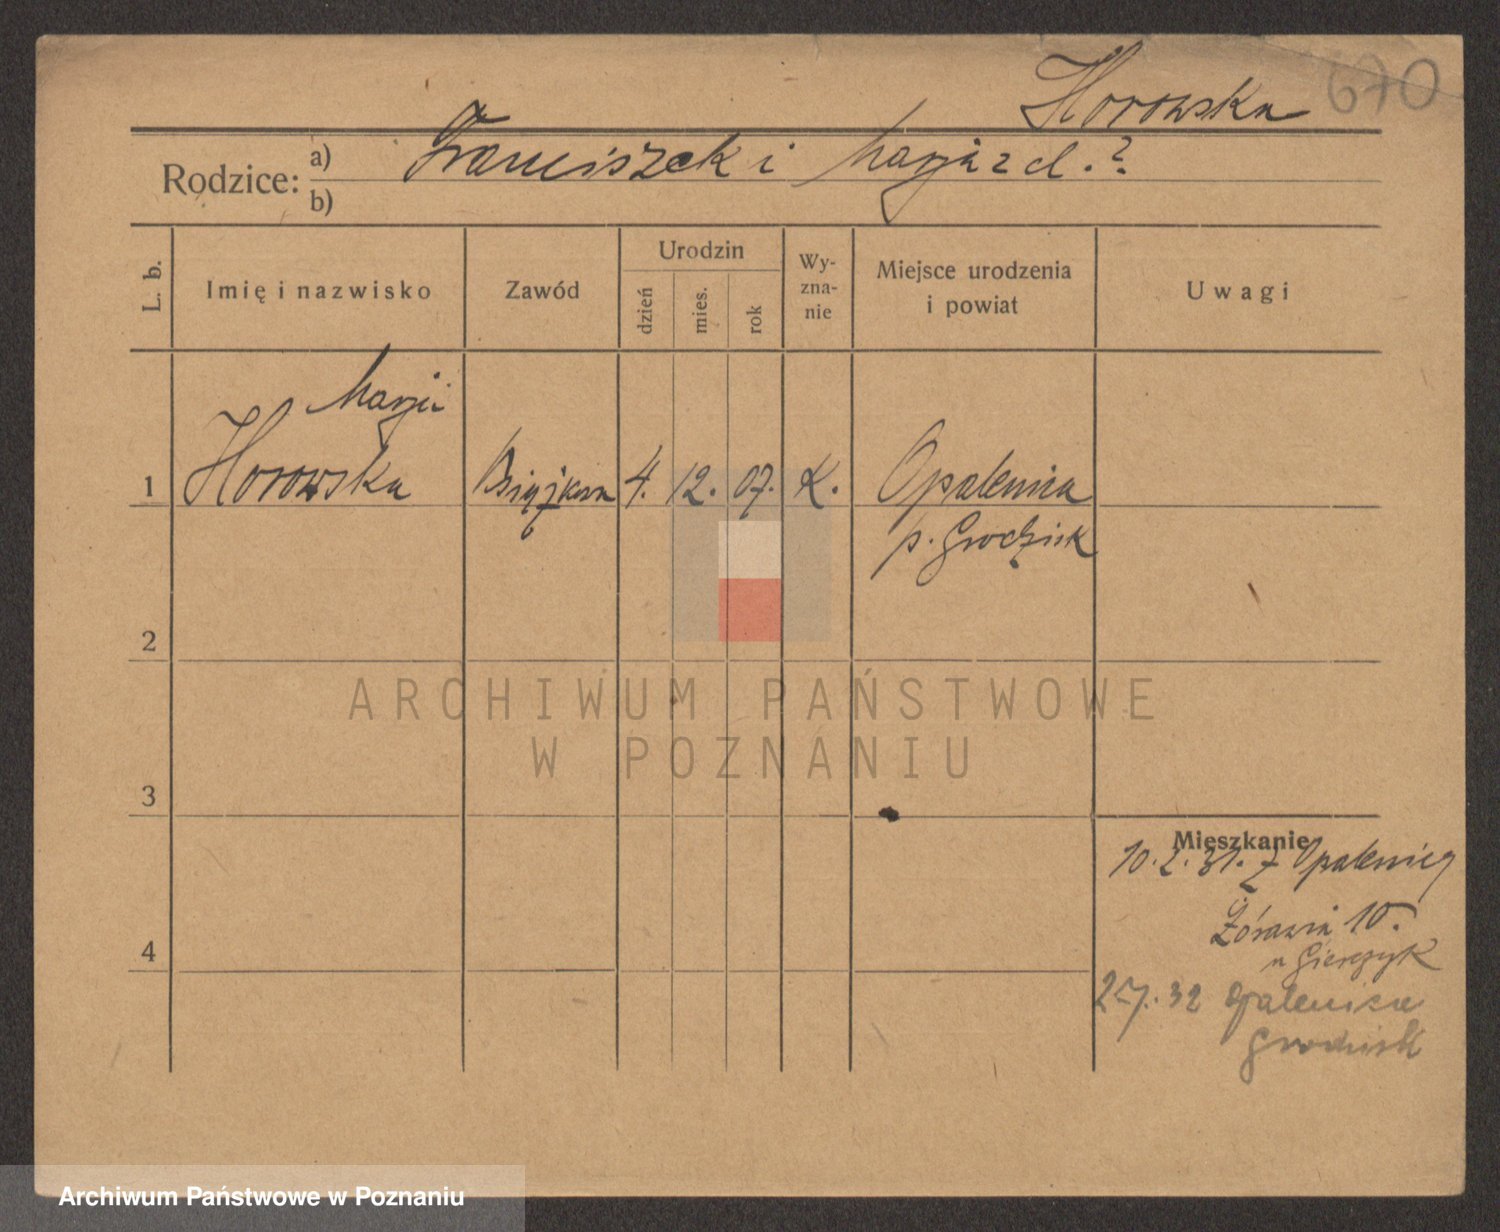 Horowska 670
Rodzice: a) Franciszek i Marja z d. ?
b)
L. b. Imię i nazwisko Zawód Urodzin dzień mies. rok Wy-zna-nie Miejsce urodzenia i powiat Uwagi
Marja
1 Horowska 4. 12. 07. K. Opalenica
p. Grodzisk
2
ARCHIWUM PAŃSTWOWE
W POZNANIU
3
Mieszkanie
10.2.31. z Opalenicy
Żórawia 10.
u
4
27.32 Opalenica
Grodzisk
Archiwum Państwowe w Poznaniu